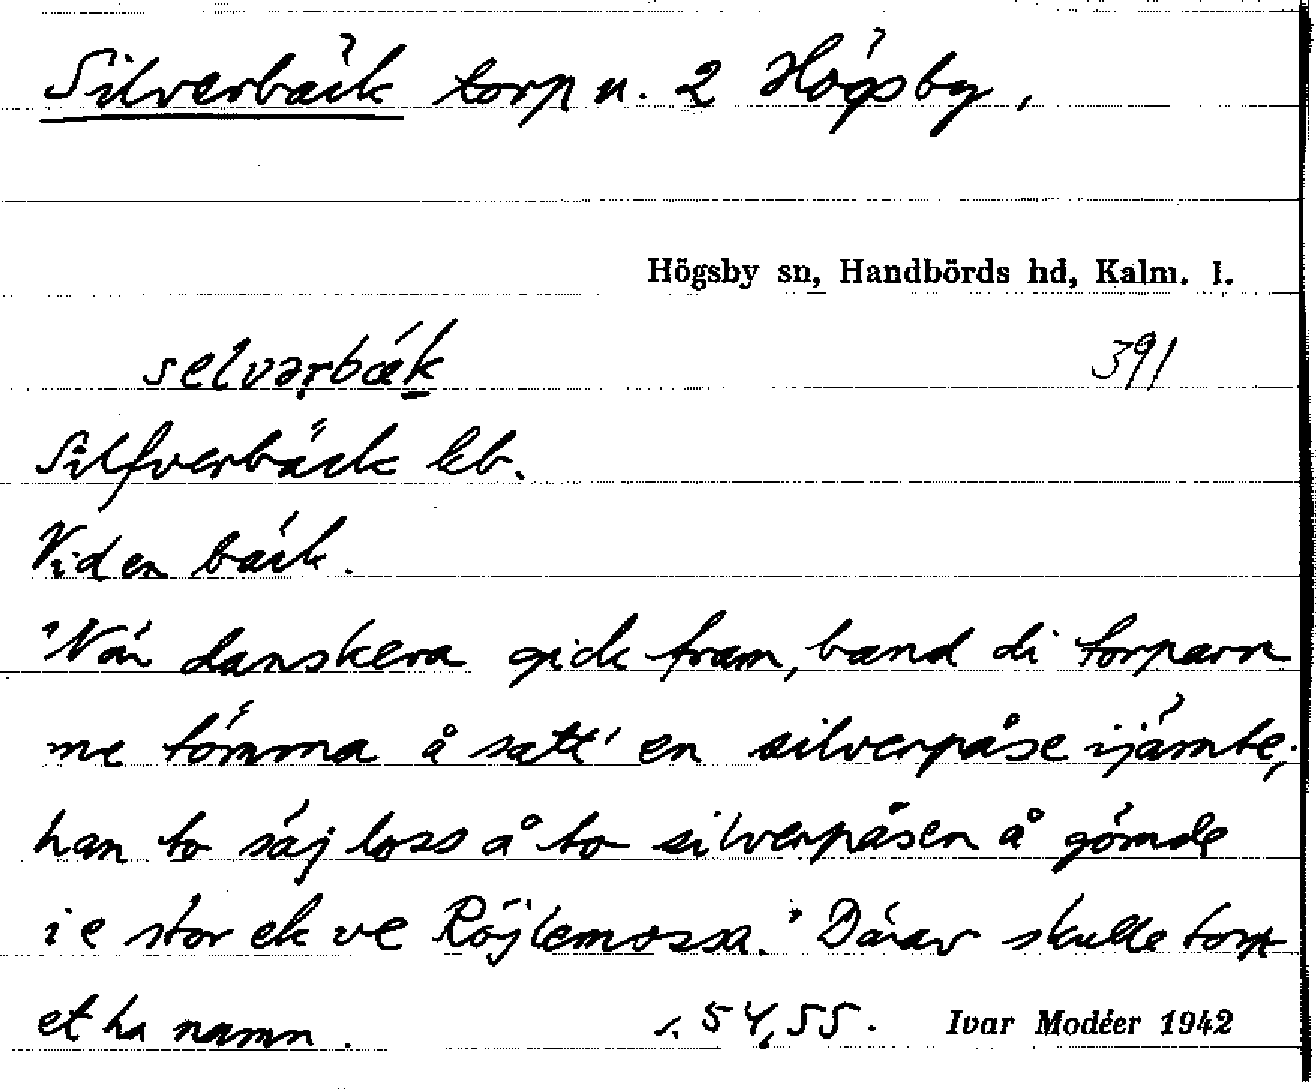 Silverbäck torp u. 2 Högsby,
Högsby sn, Handbörds hd, Kalm. l.
selvərbæk 391
Silfverbäck kb.
Vid en bäck.
"När danskera gick fram, band di torparn
me tömma å satt' en silverpåse ijämte,
han to säj loss å to silverpåsen å gömde
i e stor ek ve Röjlemossa." Därav skulle torp
et ha namn. s. 54, 55. Ivar Modéer 1942